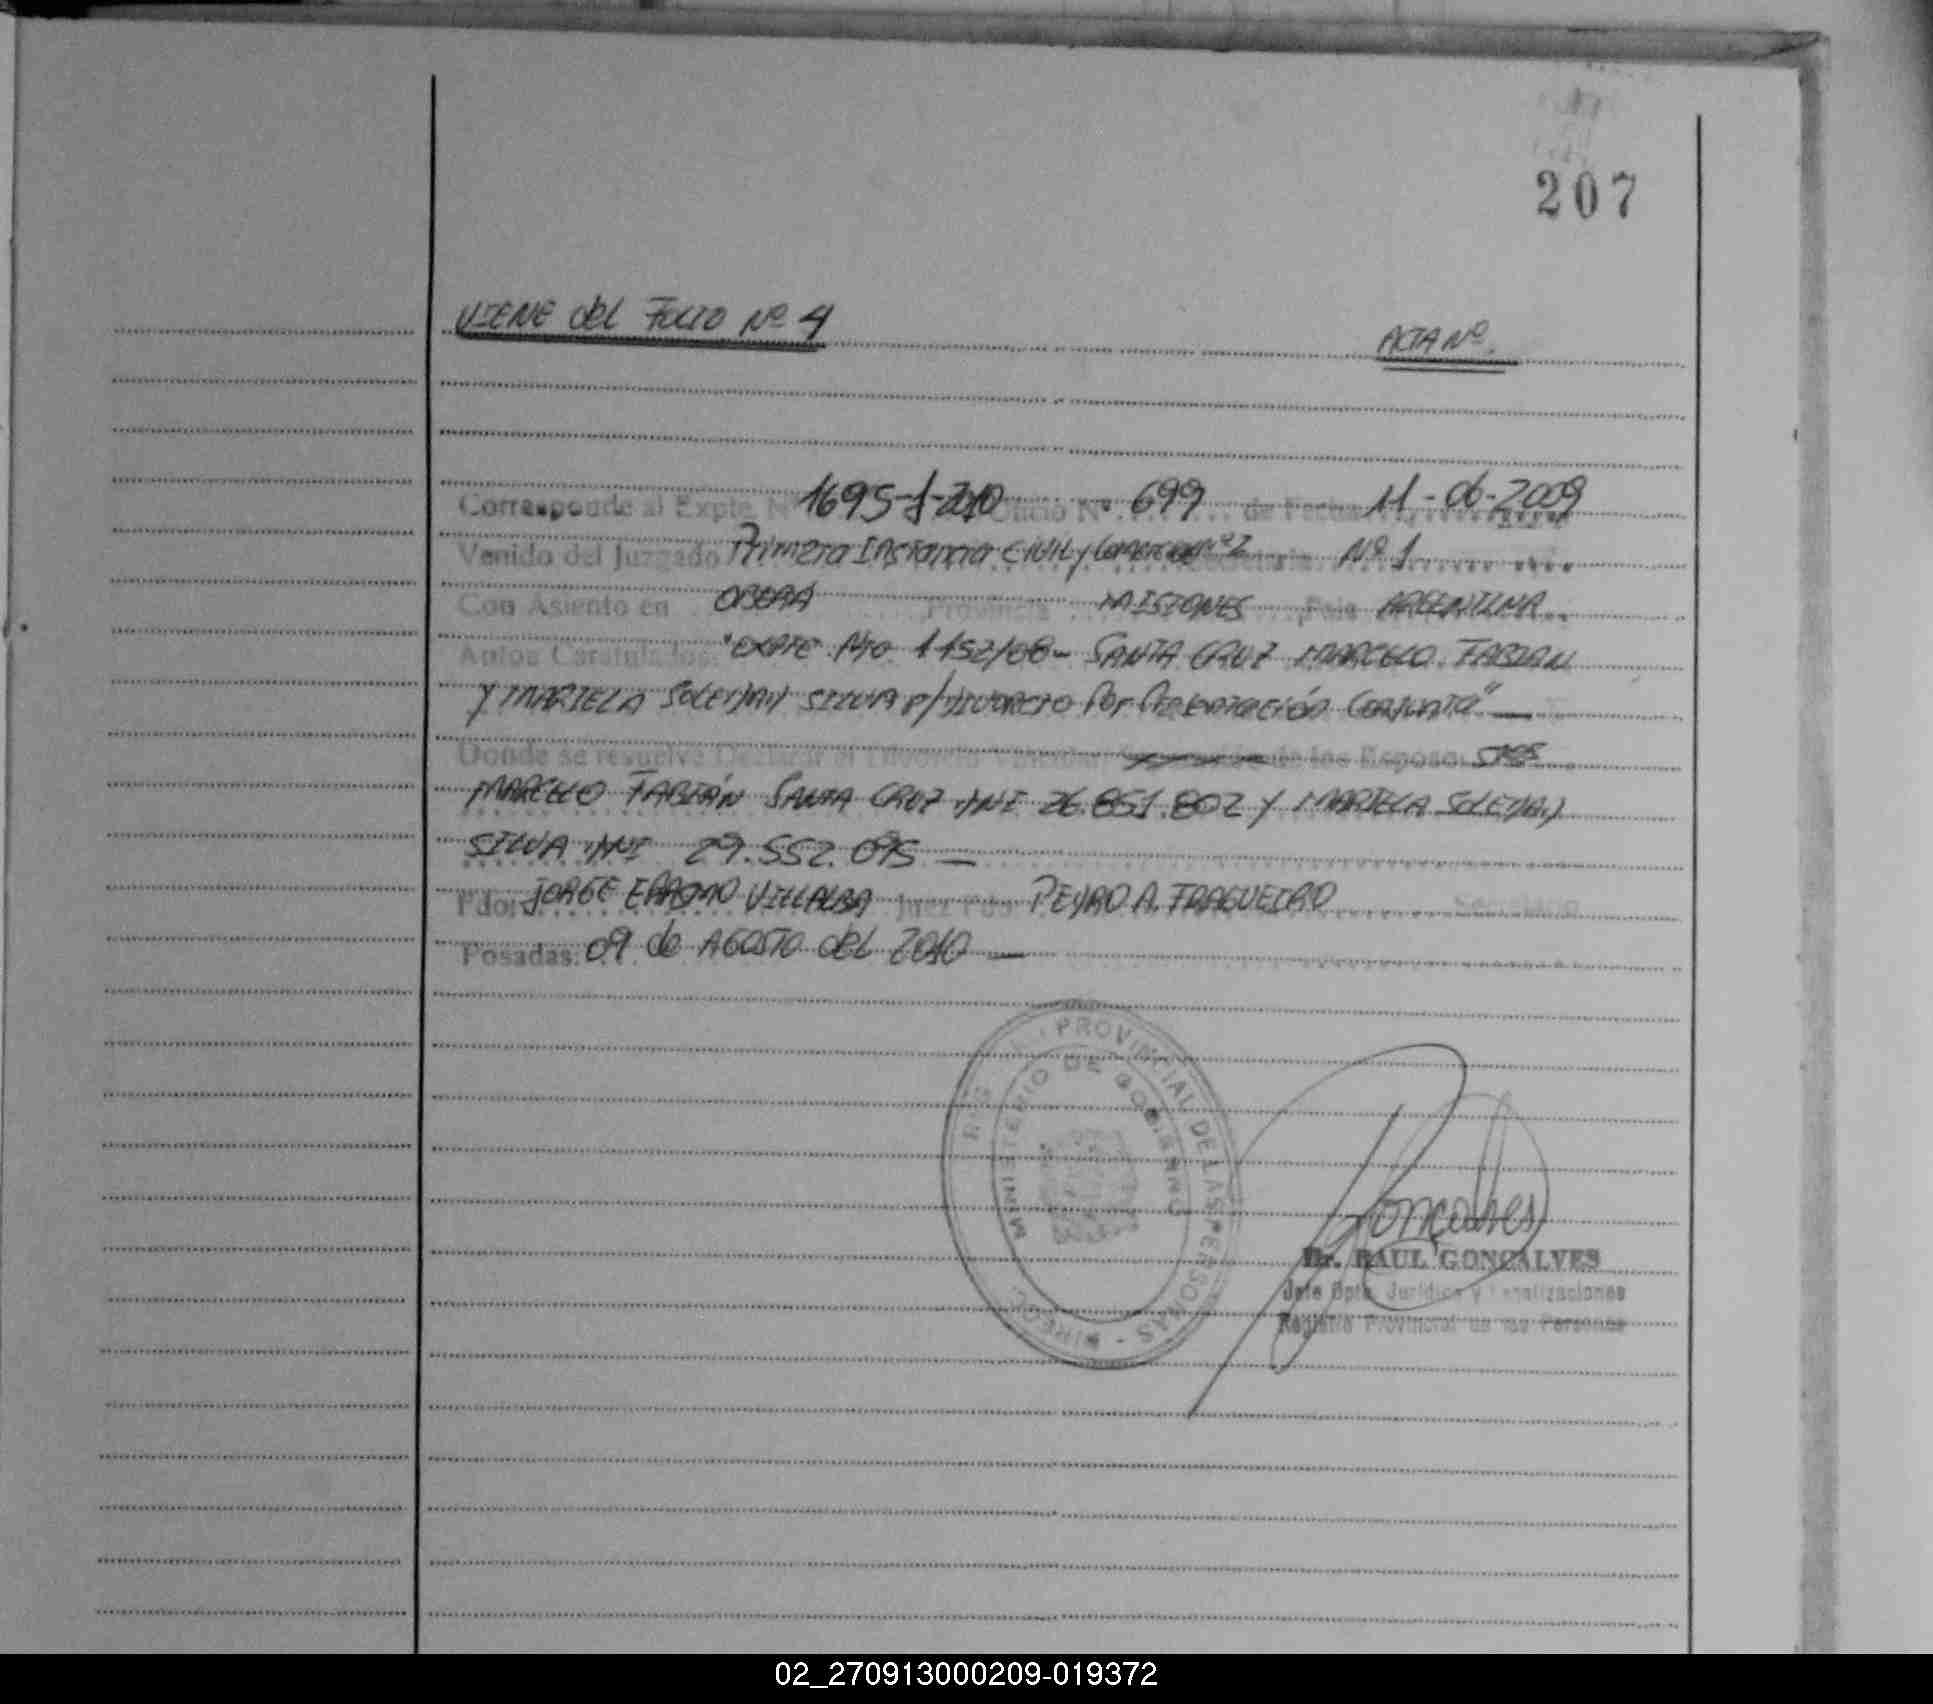 207
VIENE del Folio Nº 4
ACTA Nº
Corresponde al Expte. Nº 1695-J-2010 Oficio Nº 699 de Fecha 11-06-2009
Venido del Juzgado Primera Instancia Civil y Comercial Nº 2 Secretaria Nº 1
Con Asiento en OBERÁ Provincia MISIONES Pais ARGENTINA
Autos Caratulados: "EXPTE Nro 1152/08 - SANTA CRUZ MARCELO FABIAN
Y MARIELA SOLEDAD SILVA P/ DIVORCIO Por Presentación Conjunta"
Donde se resuelve Declarar el Divorcio Vincular de los Esposos SRES
MARCELO FABIÁN SANTA CRUZ DNI 26.851.802 Y MARIELA SOLEDAD
SILVA DNI 29.552.095
Fdo: JORGE ERASMO VILLALBA Juez Fdo PEDRO A. FRAGUEIRO Secretario
Posadas: 09 de AGOSTO del 2010
DIREC. REG. PROVINCIAL DE LAS PERSONAS
MINISTERIO DE GOBIERNO
Gonçalves
Dr. RAUL GONÇALVES
Jefe Dpto. Jurídico y Legalizaciones
Registro Provincial de las Personas
02_270913000209-019372